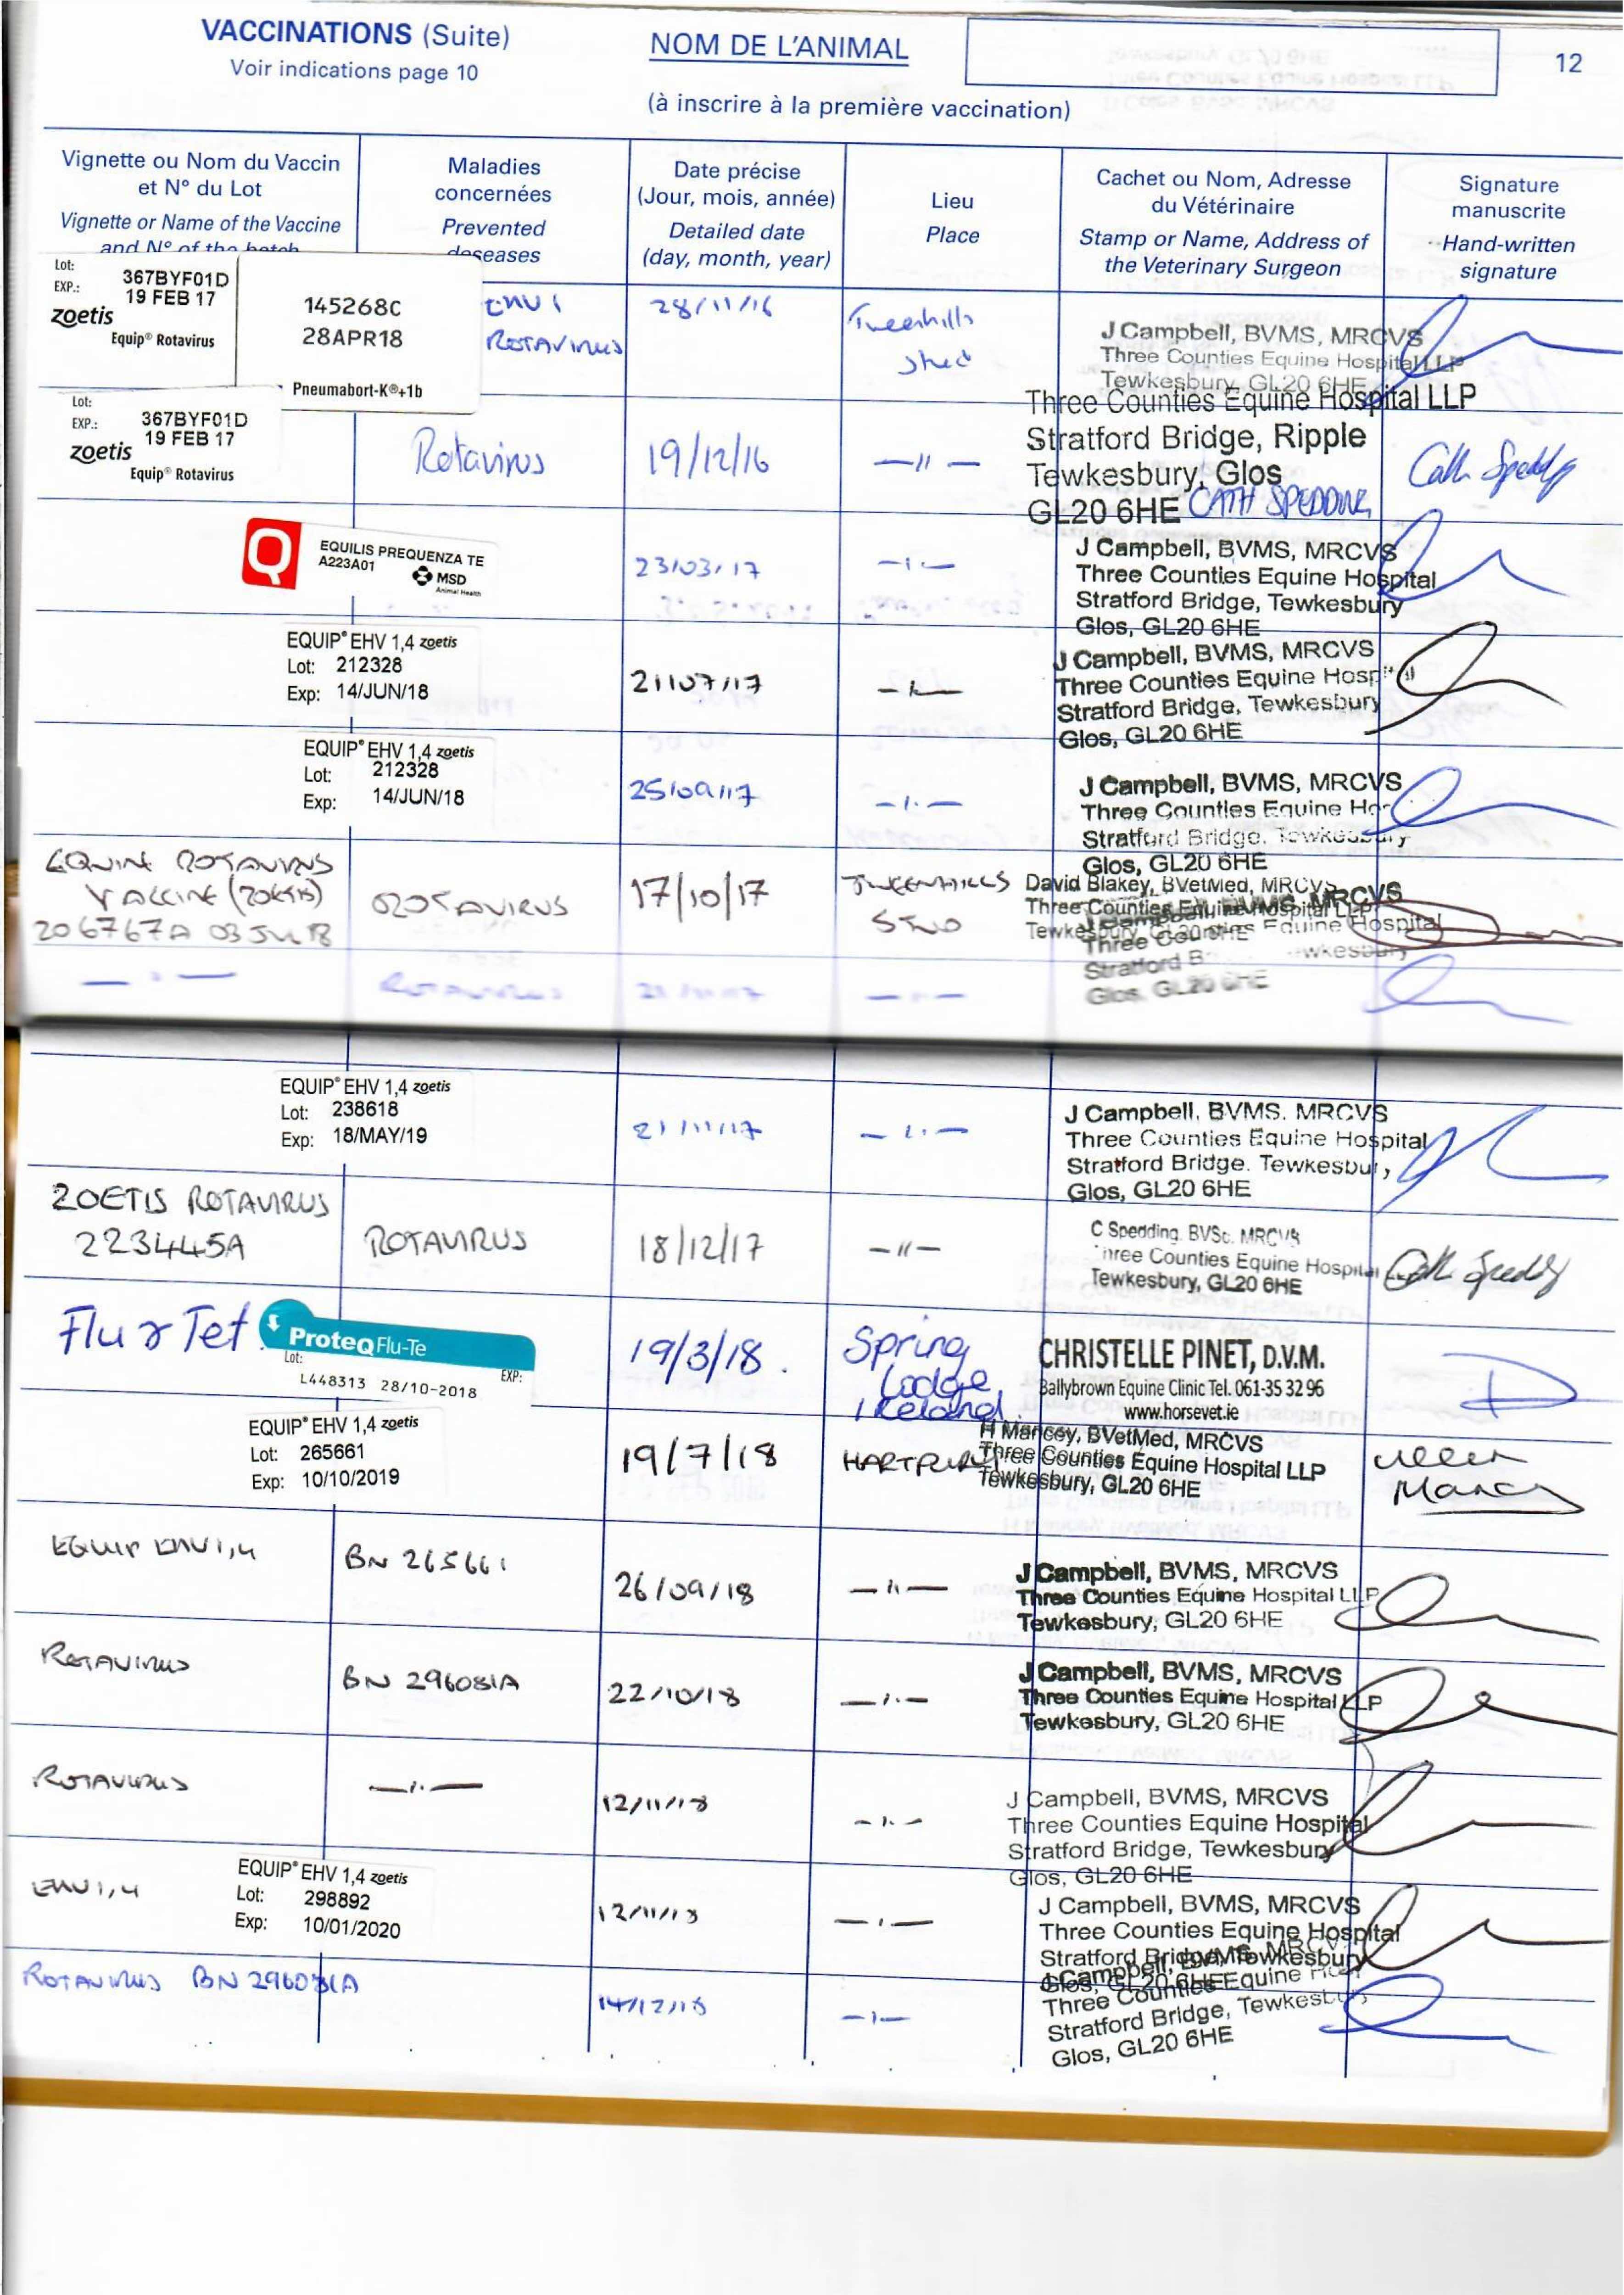 VACCINATIONS (Suite)
Voir indications page 10
NOM DE L'ANIMAL
12
(à inscrire à la première vaccination)
Vignette ou Nom du Vaccin
et N° du Lot
Vignette or Name of the Vaccine
and N° of the batch
Maladies
concernées
Prevented
deseases
Date précise
(Jour, mois, année)
Detailed date
(day, month, year)
Lieu
Place
Cachet ou Nom, Adresse
du Vétérinaire
Stamp or Name, Address of
the Veterinary Surgeon
Signature
manuscrite
Hand-written
signature
Lot: 367BYF01D
EXP.: 19 FEB 17
zoetis
Equip® Rotavirus
145268C
28APR18
Pneumabort-K®+1b
EHV1
ROTAVIRUS
28/11/16
Tweenhills
Stud
J Campbell, BVMS, MRCVS
Three Counties Equine Hospital LLP
Tewkesbury, GL20 6HE
Lot: 367BYF01D
EXP.: 19 FEB 17
zoetis
Equip® Rotavirus
Rotavirus
19/12/16
—11—
Three Counties Equine Hospital LLP
Stratford Bridge, Ripple
Tewkesbury, Glos
GL20 6HE CATH SPEDDING
Cath Spedding
Q
EQUILIS PREQUENZA TE
A223A01
MSD
Animal Health
23/03/17
J Campbell, BVMS, MRCVS
Three Counties Equine Hospital
Stratford Bridge, Tewkesbury
Glos, GL20 6HE
EQUIP® EHV 1,4 zoetis
Lot: 212328
Exp: 14/JUN/18
21/07/17
J Campbell, BVMS, MRCVS
Three Counties Equine Hospital
Stratford Bridge, Tewkesbury
Glos, GL20 6HE
EQUIP® EHV 1,4 zoetis
Lot: 212328
Exp: 14/JUN/18
25/09/17
J Campbell, BVMS, MRCVS
Three Counties Equine
Stratford Bridge, Tewkesbury
Glos, GL20 6HE
EQUINE ROTAVIRUS
VACCINE (ZOETIS)
206767A 03 JUL 18
ROTAVIRUS
17/10/17
TWEENHILLS
STUD
David Blakey, BVetMed, MRCVS
Three Counties Equine Hospital LLP
Tewkesbury, GL20 6HE
ROTAVIRUS
Glos, GL20 6HE
EQUIP® EHV 1,4 zoetis
Lot: 238618
Exp: 18/MAY/19
21/11/17
J Campbell, BVMS, MRCVS
Three Counties Equine Hospital
Stratford Bridge, Tewkesbury,
Glos, GL20 6HE
ZOETIS ROTAVIRUS
223445A
ROTAVIRUS
18/12/17
—11—
C Spedding, BVSc, MRCVS
Three Counties Equine Hospital
Tewkesbury, GL20 6HE
Cath Spedding
Flu & Tet
ProteqFlu-Te
Lot:
EXP:
L448313 28/10-2018
19/3/18.
Spring
Lodge
Ireland.
CHRISTELLE PINET, D.V.M.
Ballybrown Equine Clinic Tel. 061-35 32 96
www.horsevet.ie
EQUIP® EHV 1,4 zoetis
Lot: 265661
Exp: 10/10/2019
19/7/18
HARTPURY
H Mancey, BVetMed, MRCVS
Three Counties Equine Hospital LLP
Tewkesbury, GL20 6HE
EQUIP EHV 1,4
BN 265661
26/09/18
—11—
J Campbell, BVMS, MRCVS
Three Counties Equine Hospital LLP
Tewkesbury, GL20 6HE
ROTAVIRUS
BN 296081A
22/10/18
J Campbell, BVMS, MRCVS
Three Counties Equine Hospital LLP
Tewkesbury, GL20 6HE
ROTAVIRUS
12/11/18
J Campbell, BVMS, MRCVS
Three Counties Equine Hospital
Stratford Bridge, Tewkesbury
Glos, GL20 6HE
EHV 1,4
EQUIP® EHV 1,4 zoetis
Lot: 298892
Exp: 10/01/2020
12/11/18
J Campbell, BVMS, MRCVS
Three Counties Equine Hospital
Stratford Bridge, Tewkesbury
Glos, GL20 6HE
ROTAVIRUS BN 296081A
14/12/18
J Campbell, BVMS, MRCVS
Three Counties Equine
Stratford Bridge, Tewkesbury
Glos, GL20 6HE